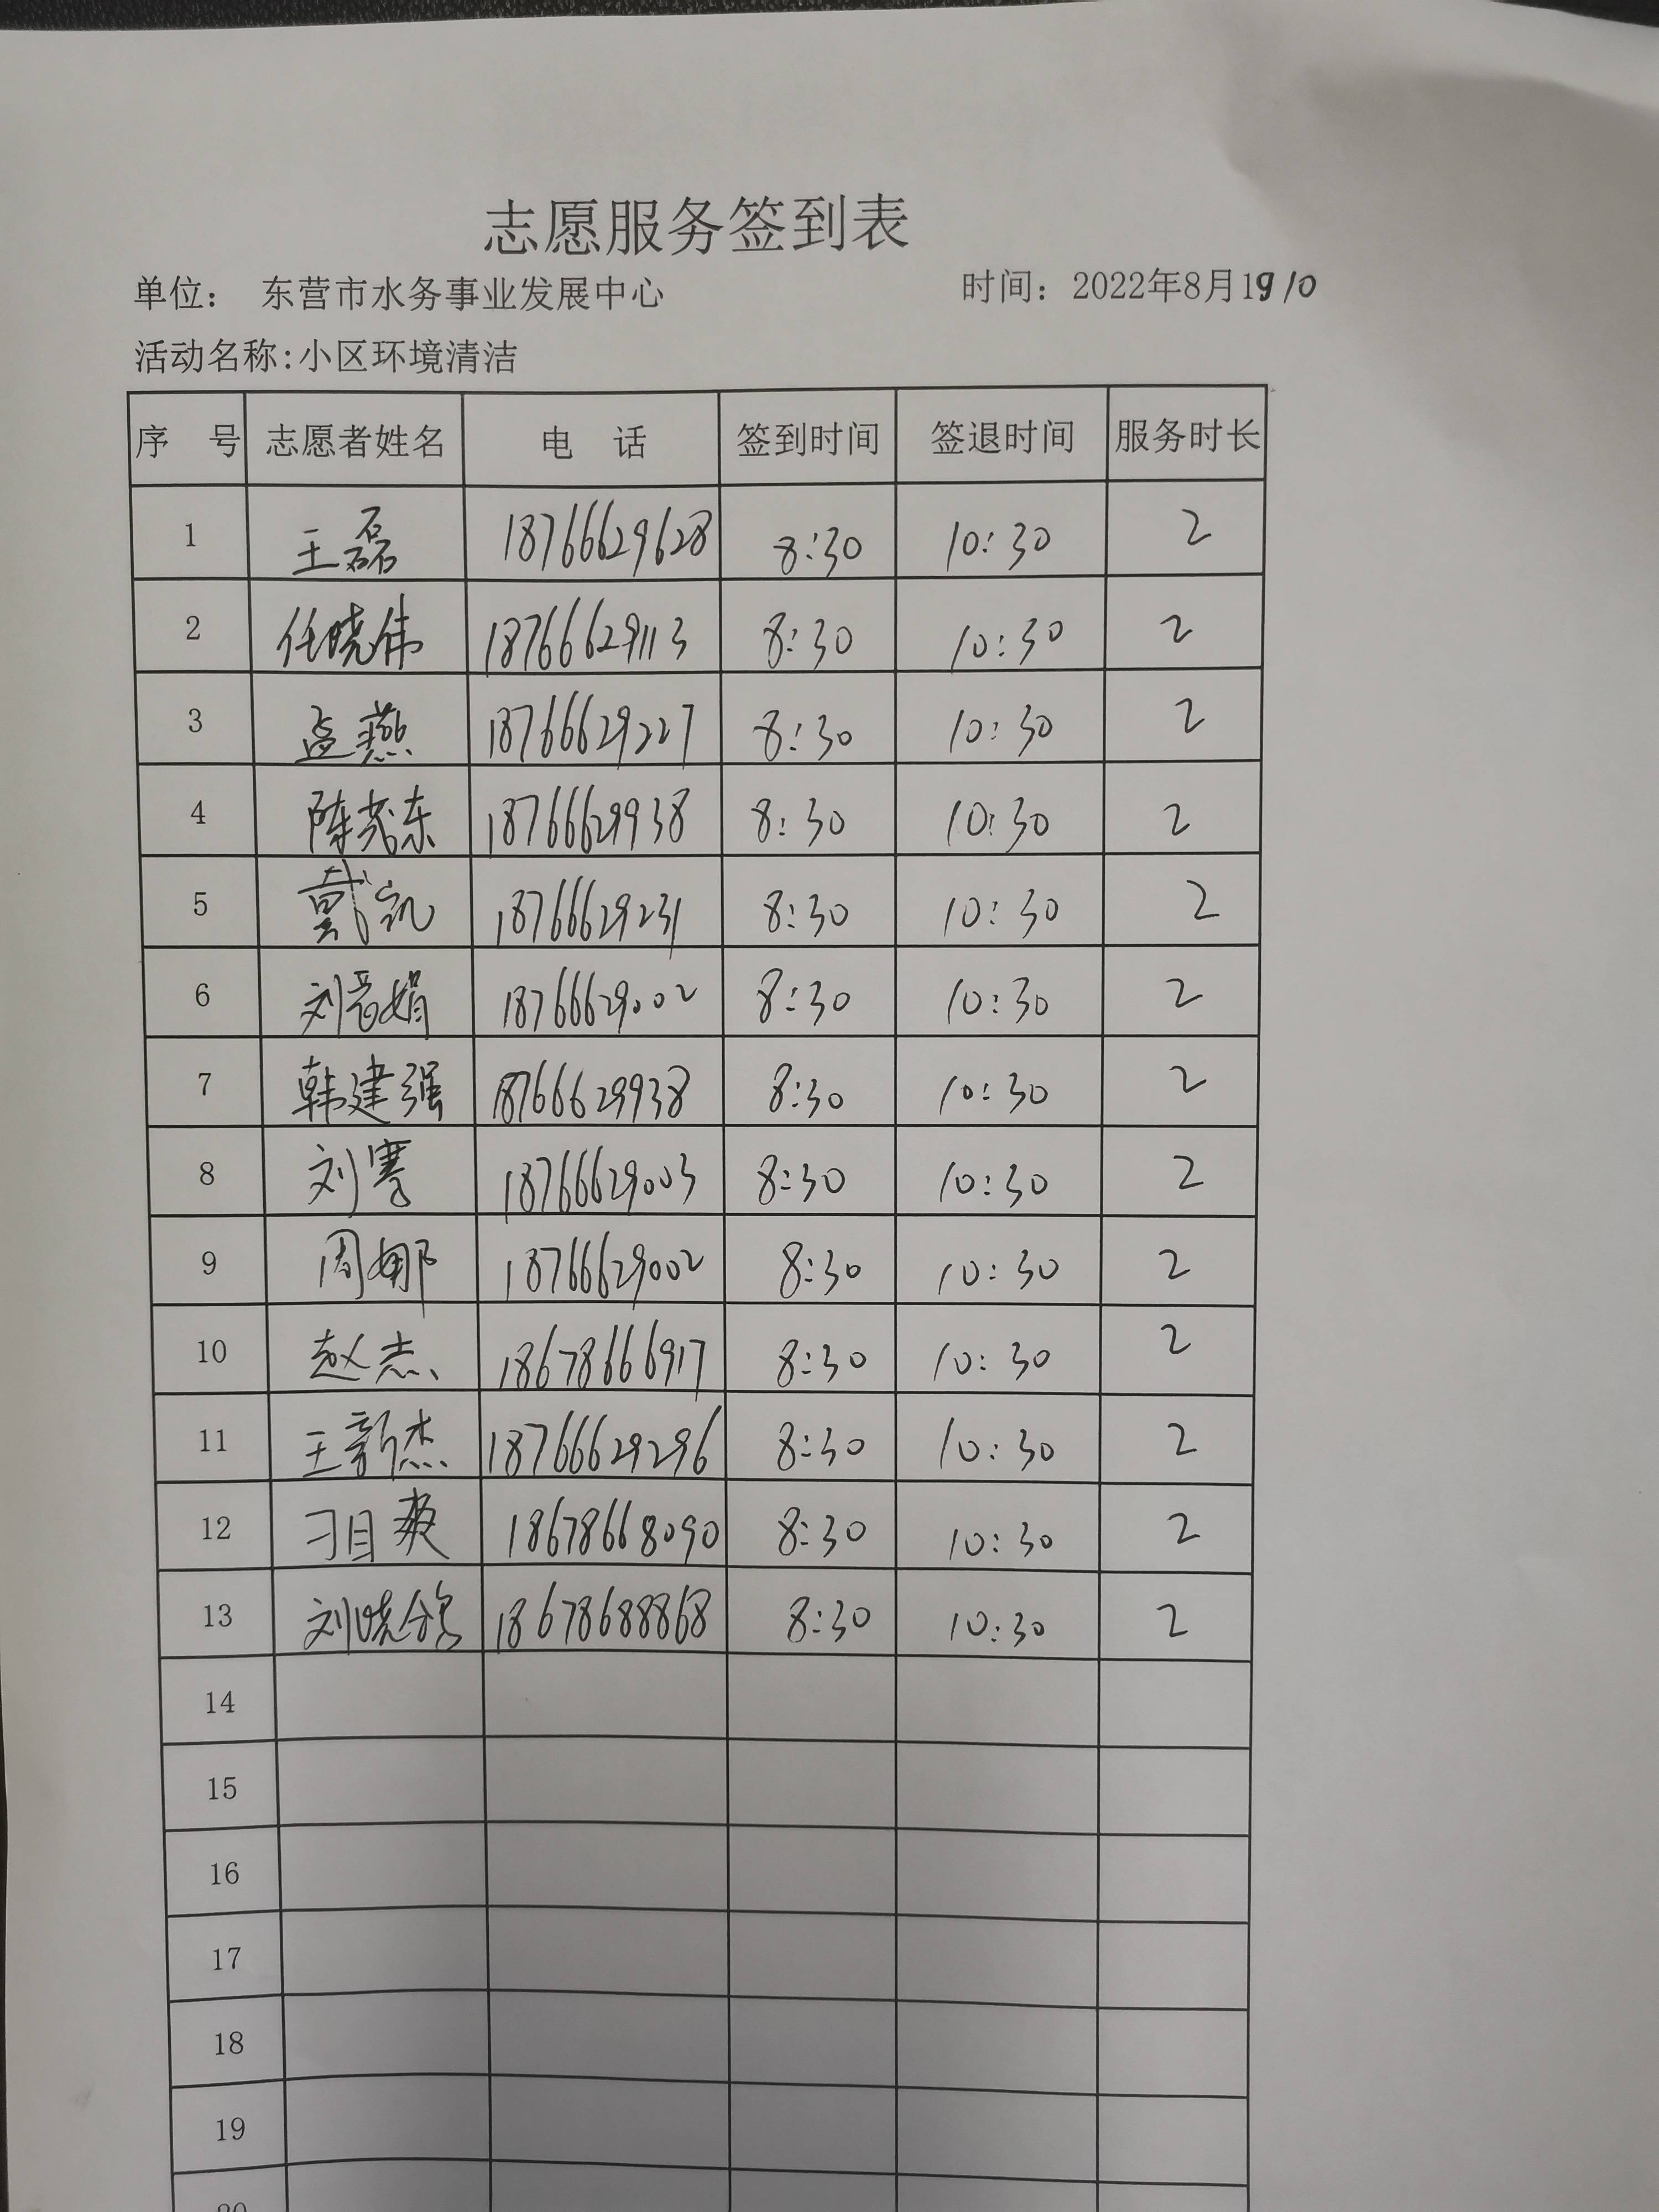 志愿服务签到表
单位： 东营市水务事业发展中心 时间：2022年8月19/0
活动名称:小区环境清洁
序 号 志愿者姓名 电 话 签到时间 签退时间 服务时长
1 王磊 18766629628 8:30 10:30 2
2 任晓伟 18766629113 8:30 10:30 2
3 孟燕 18766629227 8:30 10:30 2
4 陈茂东 18766629938 8:30 10:30 2
5 戴凯 18766629231 8:30 10:30 2
6 刘晋娟 18766629002 8:30 10:30 2
7 韩建强 18766629938 8:30 10:30 2
8 刘骞 18766629003 8:30 10:30 2
9 周娜 18766629002 8:30 10:30 2
10 赵杰 18678666917 8:30 10:30 2
11 王新杰 18766629296 8:30 10:30 2
12 刁目爽 18678668090 8:30 10:30 2
13 刘晓 18678688868 8:30 10:30 2
14
15
16
17
18
19
20